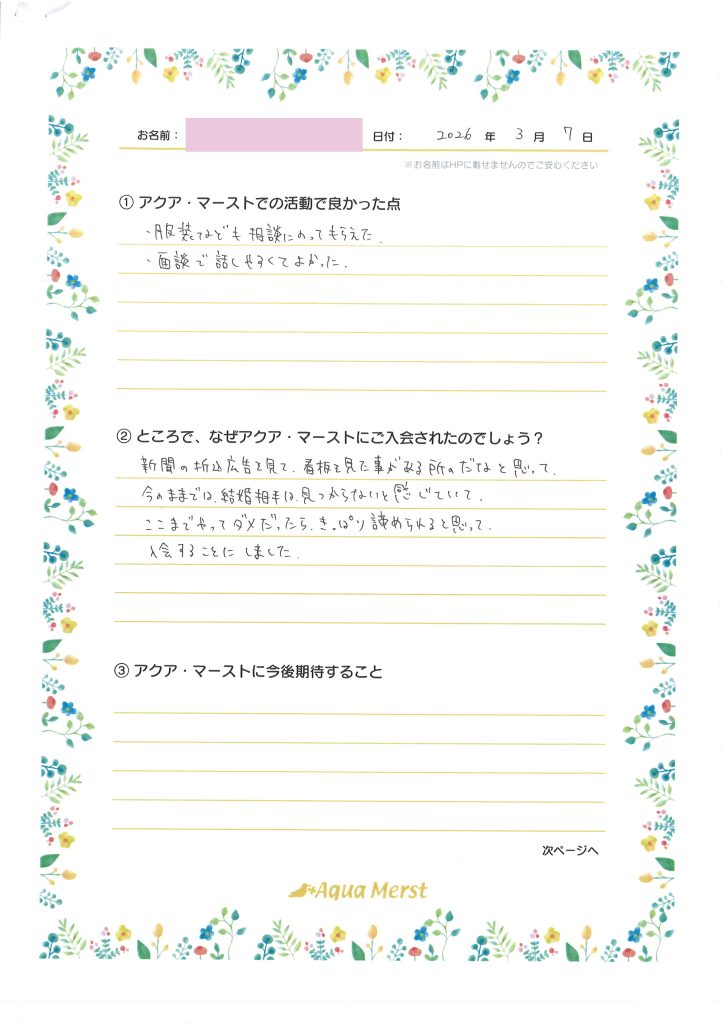 お名前： 日付： 2026 年 3 月 7 日
※お名前はHPに載せませんのでご安心ください
① アクア・マーストでの活動で良かった点
・服装なども相談にのってもらえた.
・面談で話しやすくてよかった.
② ところで、なぜアクア・マーストにご入会されたのでしょう？
新聞の折込広告を見て、看板を見た事がある所のだなと思って.
今のままでは、結婚相手は、見つからないと感じていて.
ここまでやってダメだったら、きっぱり諦められると思って.
入会することにしました.
③ アクア・マーストに今後期待すること
次ページへ
Aqua Merst